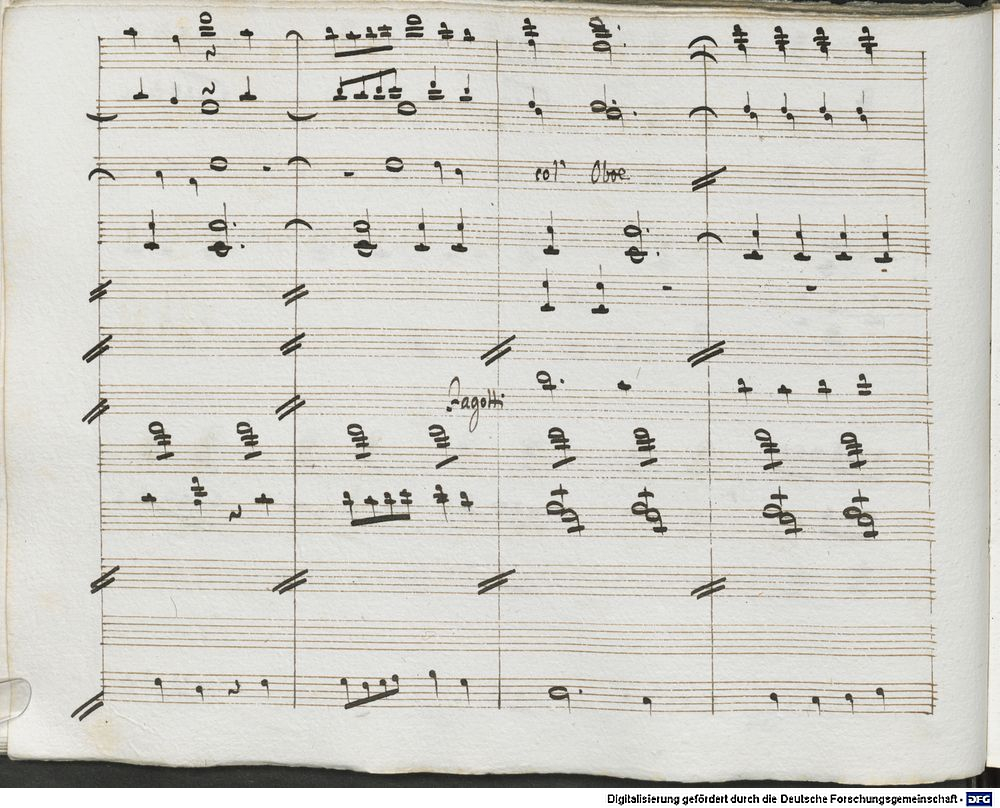 col' Oboe
Fagotti
Digitalisierung gefördert durch die Deutsche Forschungsgemeinschaft - DFG